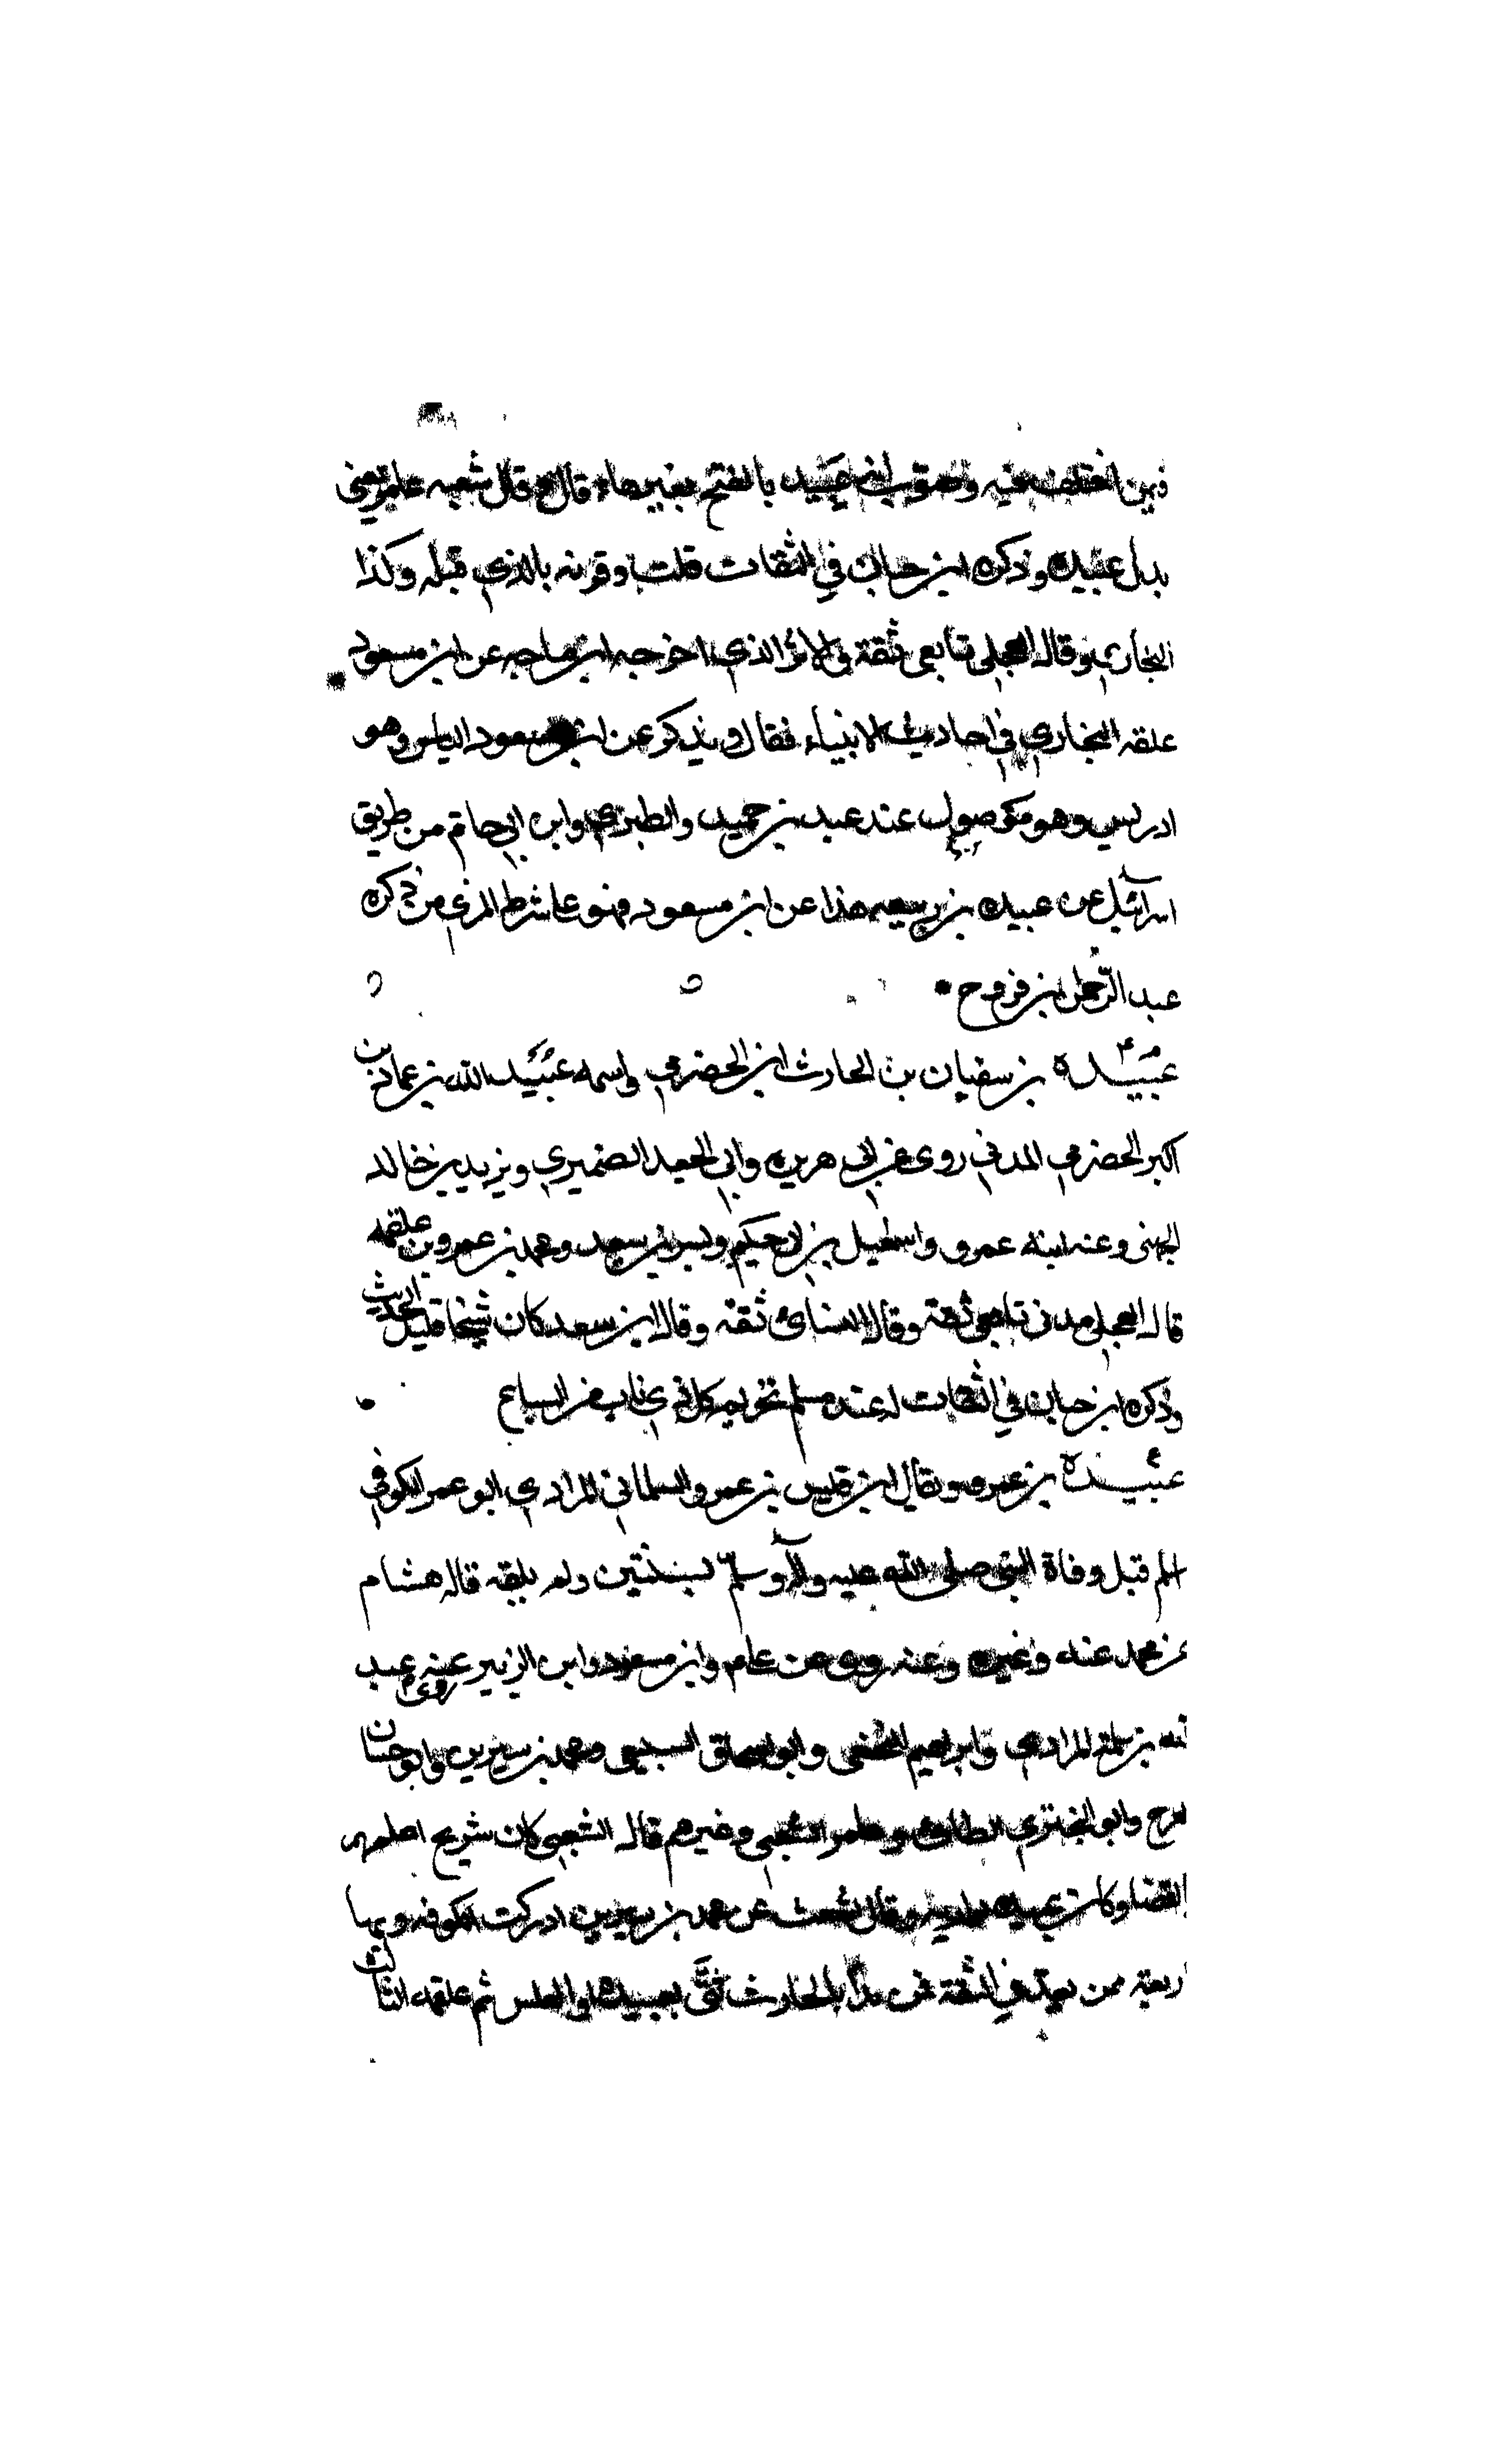 فيمن اختلف فيه وصوب انه عبيد بالفتح بغير هاء قال وقال شعبه عامر يعني
بدل عبيده وذكره ابن حبان في الثقات قلت وقرنه بالذي قبله وكذا
البخاري وقال العجلي تابعي ثقة والاثر الذي اخرجه ابن ماجه عن ابن مسعود
علقه البخاري في احاديث الانبياء فقال ويذكر عن ابن مسعود الياس وهو
ادريس وهو موصول عند عبد بن حميد والطبري وابن ابي حاتم من طريق
اسرائيل عن عبيده بن ربيعه هذا عن ابن مسعود فهو على شرط المزي من ذكره
عبد الرحمن بن فروح
عبيدة بن سفيان بن الحارث ابن الحضرمي واسمه عبيد الله بن عماد بن
اكبر الحضرمي المدني روى عن ابي هريره وابي الجعد الضميري ويزيد بن خالد
الجهني وعنه ابنه عمرو واسمعيل بن ابي حكيم وبسر بن سعيد ومحمد بن عمرو بن علقمه
قال العجلي مدني تابعي ثقة وقال النسائ ثقة وقال ابن سعد كان شيخا قليل الحديث
وذكره ابن حبان في الثقات له عند مسلم تحريم كل ذي ناب من السباع
عبيدة بن عمرو ويقال ابن قيس بن عمرو السلماني المرادي ابو عمر الكوفي
اسلم قبل وفاة النبي صلى الله عليه وآله وسلم بسنتين ولم يلقه قاله هشام
بن محمد عنه وغيره وعنه روى عن علي وابن مسعود وابن الزبير روى عنه عبد
الله بن سلمة المرادي وابراهيم النخعي وابو اسحاق السبيعي ومحمد بن سيرين وابو حسان
الاعرج وابو البختري الطائي وعامر الشعبي وغيرهم قال الشعبي كان شريح اعلمهم
بالقضا وكان عبيده يوازيه وقال اشعث عن محمد بن سيرين ادركت الكوفه وبها
اربعة ممن يعد في الفقه فمن بدأ بالحارث ثنى بعبيدة او العكس ثم علقمه الثالث